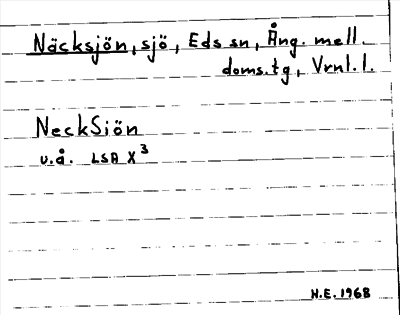 Näcksjön, sjö, Eds sn, Ång. mell.
doms.tg, Vrnl.l.
NeckSiön
u.å. LSA X³
H.E. 1968